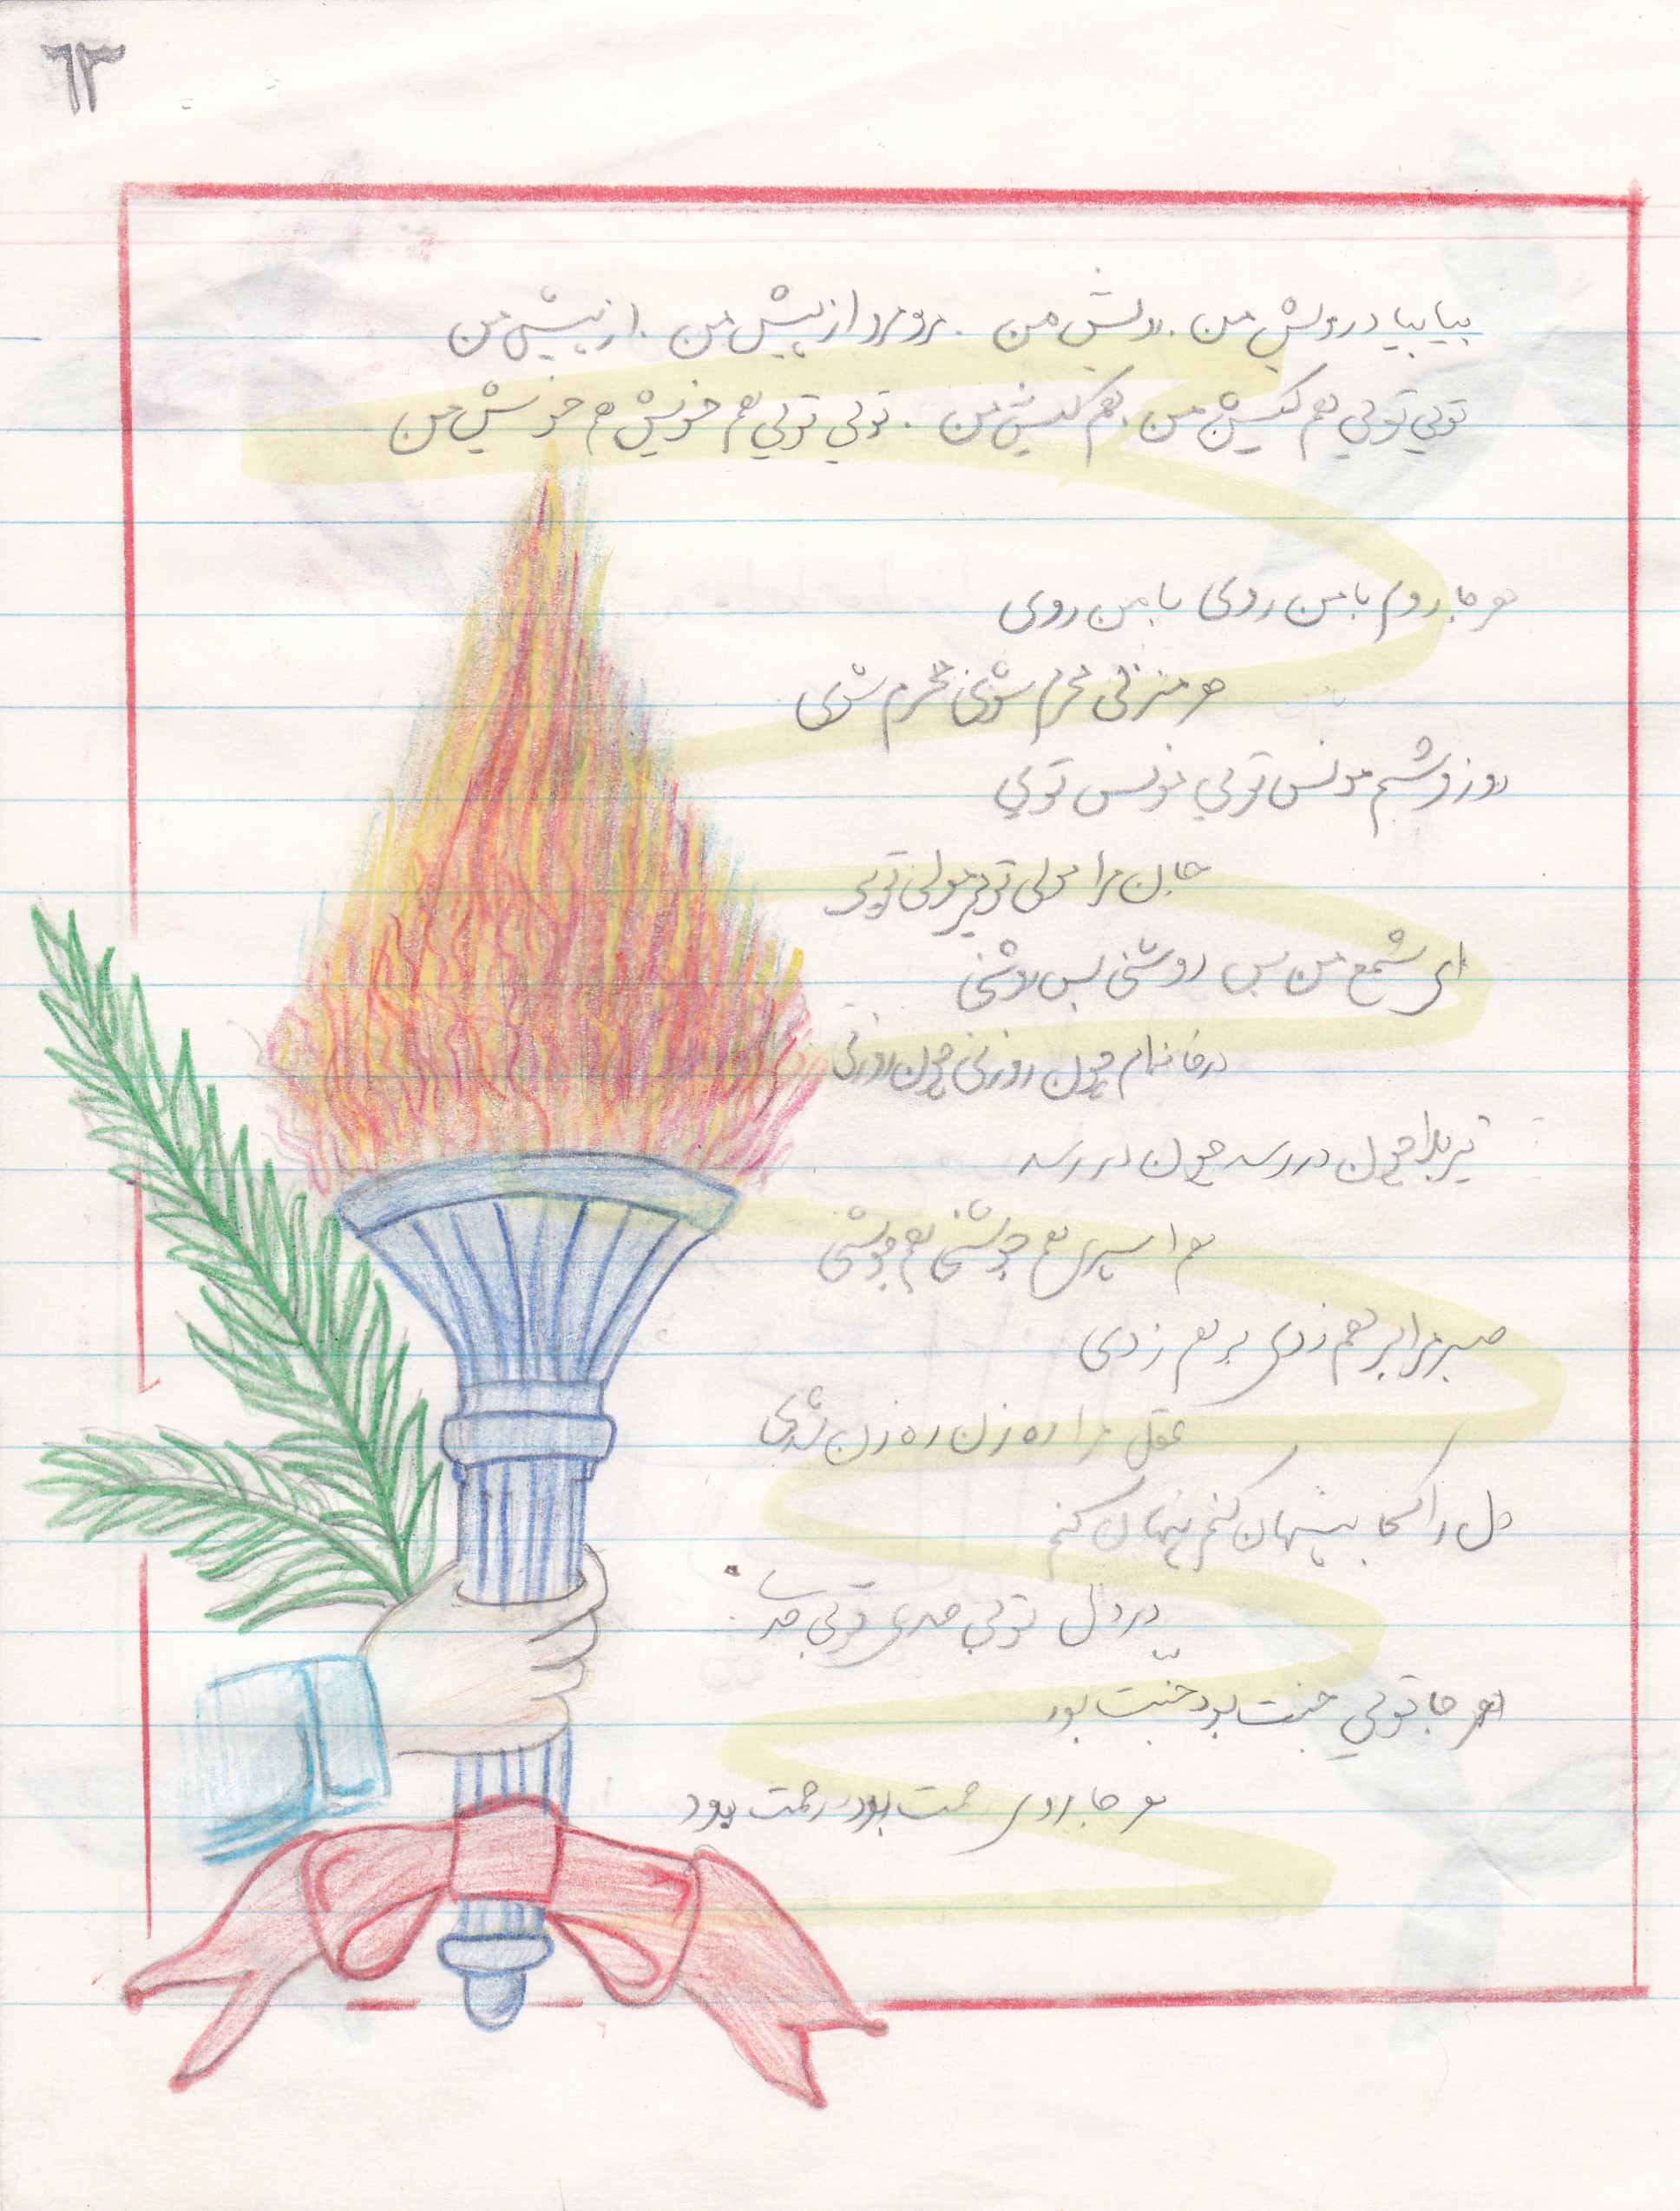 ٦٣
بیا بیا درویش من . درویش من . مرو مرو از پیش من . از پیش من
تویی تویی هم کیش من . هم کیش من . تویی تویی هم خویش هم خویش من
هر جا روم با من روی با من روی
هر منزلی محرم شوی محرم شوی
روز و شبم مونس تویی مونس تویی
جان مرا مولی تویی مولی تویی
ای شمع من بس روشنی بس روشنی
در خانه‌ام چون روزنی چون روزنی
تیر بلا چون در رسد چون در رسد
هم اسپری هم جوشنی هم جوشنی
صبر مرا بر هم زدی بر هم زدی
عقل مرا ره زن ره زن شدی
دل را کجا پنهان کنم پنهان کنم
در دل تویی تویی
هر جا تویی جنت بود جنّت بود
هر جا روی رحمت بود رحمت بود